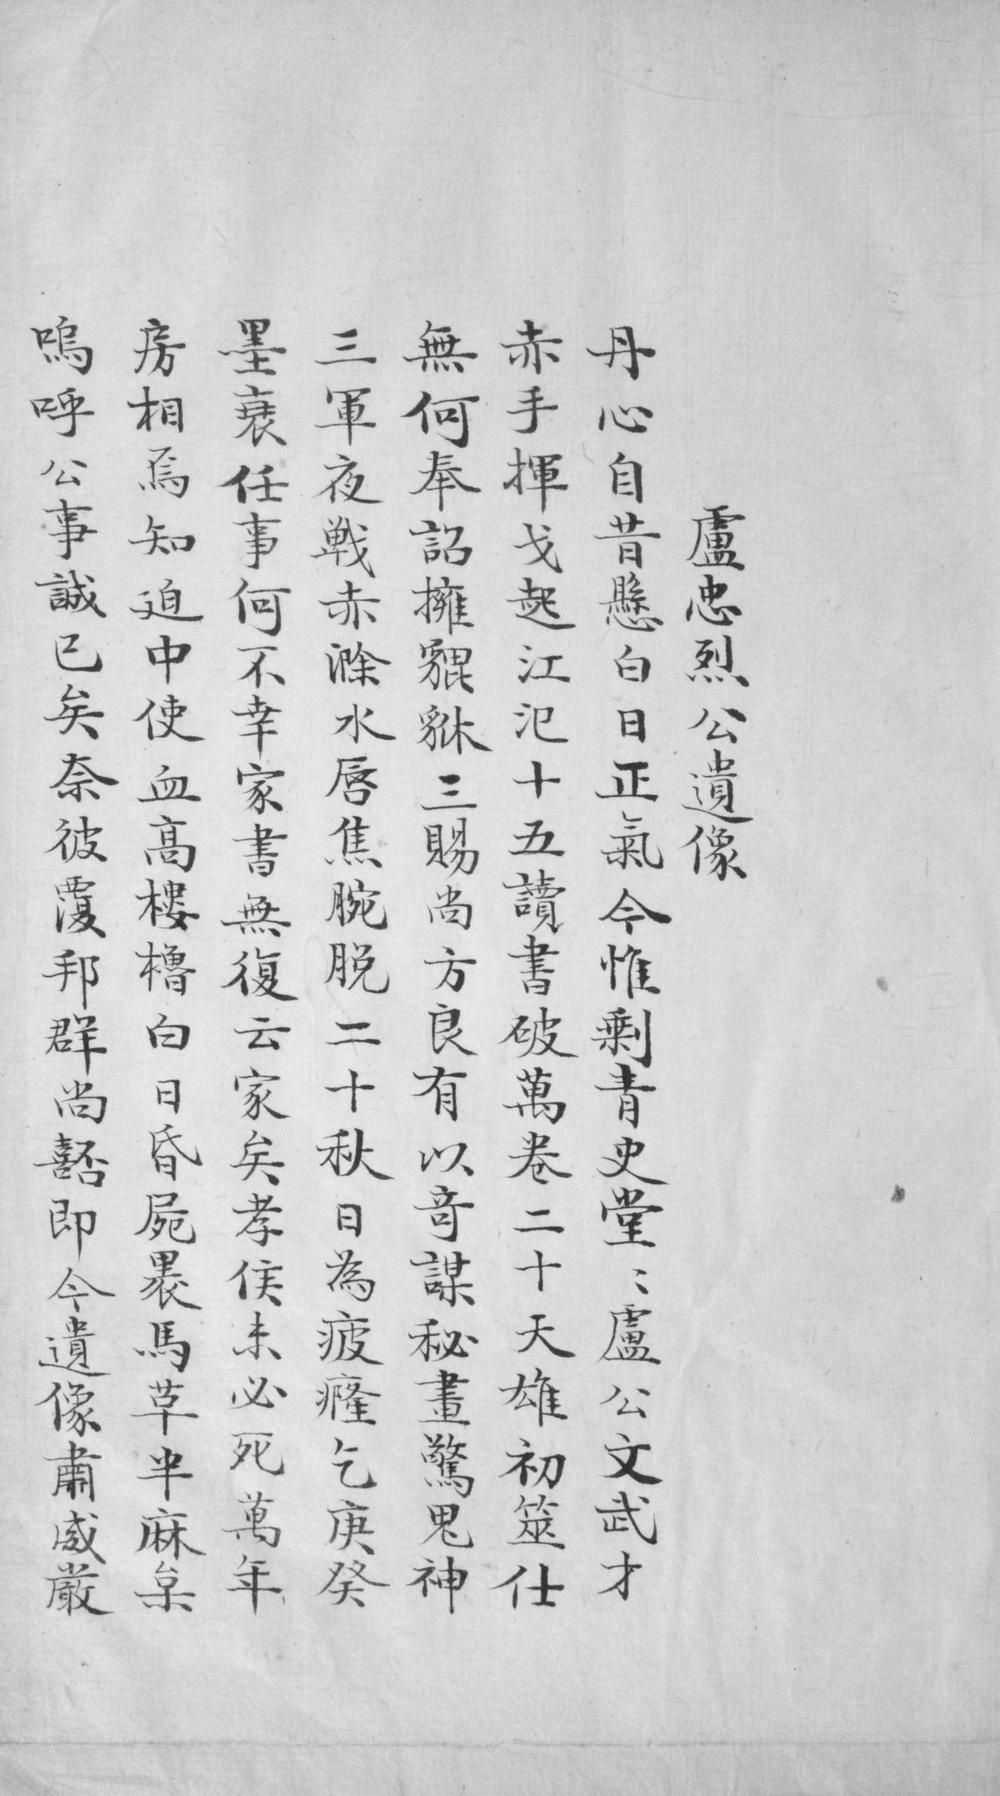 盧忠烈公遺像
丹心自昔懸白日正氣今惟剩青史堂〻盧公文武才
赤手揮戈起江汜十五讀書破萬卷二十天雄初筮仕
無何奉詔擁貔貅三賜尚方良有以奇謀秘畫驚鬼神
三軍夜戰赤滁水唇焦腕脫二十秋日為疲癃乞庚癸
墨衰任事何不幸家書無復云家矣孝侯未必死萬年
房相焉知迫中使血高樓櫓白日昏屍裹馬革半麻枲
嗚呼公事誠已矣奈彼覆邦群尚嚭即今遺像肅威嚴